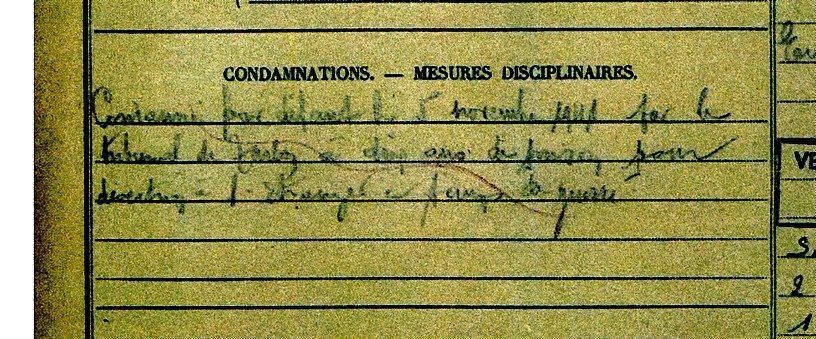 CONDAMNATIONS. — MESURES DISCIPLINAIRES.
Condamné par défaut le 5 novembre 1941 par le
tribunal de à cinq ans de prison pour
désertion à l'étranger en temps de guerre
VE
3
2
1